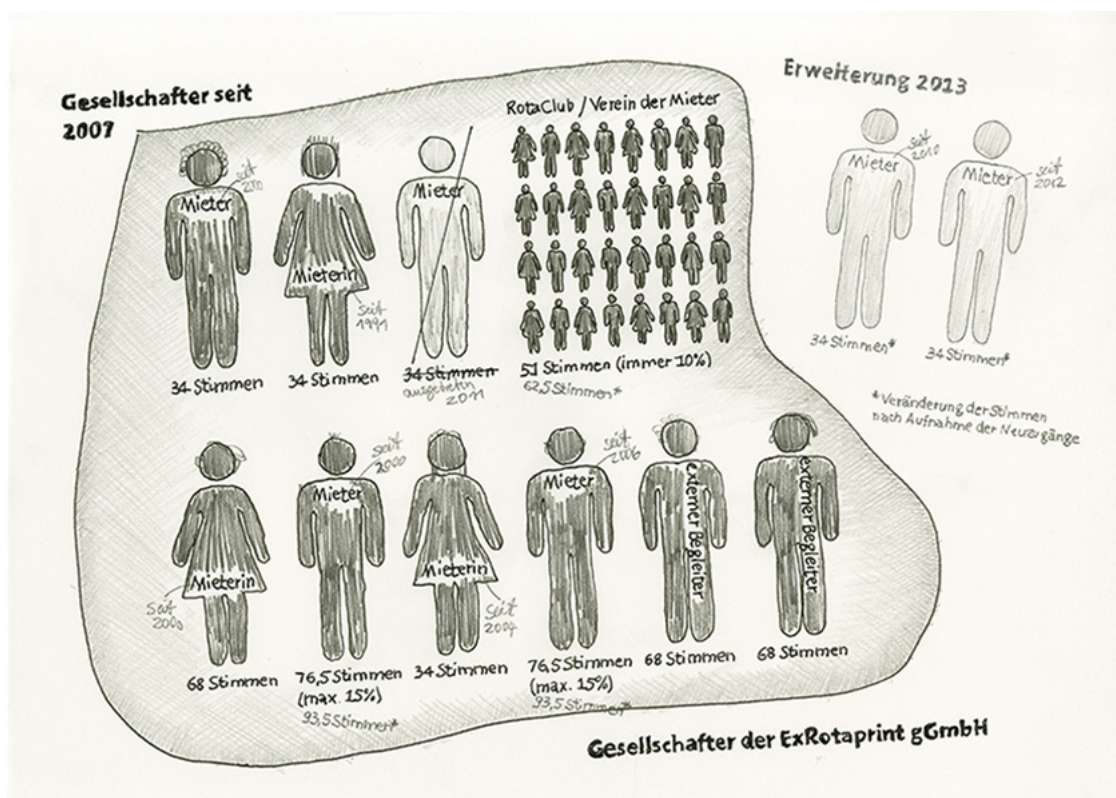 Gesellschafter seit
2007
RotaClub / Verein der Mieter
Erweiterung 2013
Mieter
seit
Mieterin
seit
1991
Mieter
Mieter
seit
2010
Mieter
seit
2012
34 Stimmen
34 Stimmen
34 Stimmen
ausgetreten
2011
51 Stimmen (immer 10%)
62,5 Stimmen*
34 Stimmen*
34 Stimmen*
*Veränderung der Stimmen
nach Aufnahme der Neuzugänge
Mieterin
seit
2000
Mieter
seit
2000
Mieterin
seit
2004
Mieter
seit
2006
externer Begleiter
externer Begleiter
68 Stimmen
76,5 Stimmen
(max. 15%)
93,5 Stimmen*
34 Stimmen
76,5 Stimmen
(max. 15%)
93,5 Stimmen*
68 Stimmen
68 Stimmen
Gesellschafter der ExRotaprint gGmbH